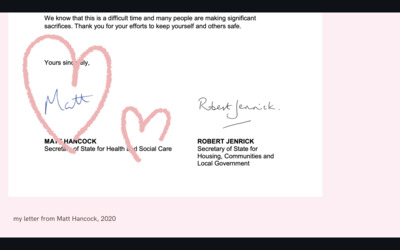 We know that this is a difficult time and many people are making significant
sacrifices. Thank you for your efforts to keep yourself and others safe.
Yours sincerely,
Matt
Robert Jenrick.
MATT HANCOCK
Secretary of State for Health and Social Care
ROBERT JENRICK
Secretary of State for
Housing, Communities and
Local Government
my letter from Matt Hancock, 2020